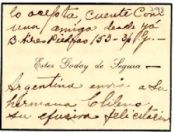 lo acepta, cuente con
una amiga desde ya
B. Aires Piedras 153-3º
Ester Godoy de Segura
Argentina envia a su
hermana Chileno
su efusiva felicitación